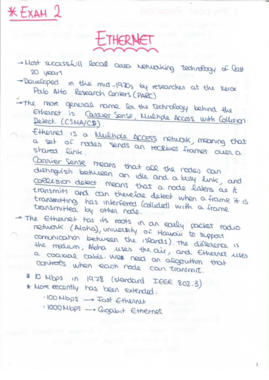 * EXAM 2
ETHERNET
→ Most successfull local area networking technology of last
20 years
→ Developed in the mid-1970s by researches at the Xerox
Palo Alto Research Centers (PARC)
→ The most general name for the technology behind the
Ethernet is Carrier Sense, Multiple Access with Collision
Detect (CSMA/CD)
Ethernet is a Multiple Access network, meaning that
a set of nodes sends and receives frames over a
shared link.
Carrier Sense means that all the nodes can
distinguish between an idle and a busy link, and
collision detect means that a node listens as it
transmits and can therefore detect when a frame it is
transmitting has interfered (collided) with a frame
transmitted by other node.
→ The Ethernet has its roots in an early packet radio
network (Aloha), university of Hawaii to support
comunication between the islands). The difference is
the medium, Aloha uses the air, and Ethernet uses
a coaxial cable. We need an algorithm that
controls when each node can transmit.
* 10 Mbps in 1978 (standard IEEE 802.3)
* More recently has been extended:
· 100 Mbps → Fast Ethernet
· 1000 Mbps → Gigabit Ethernet